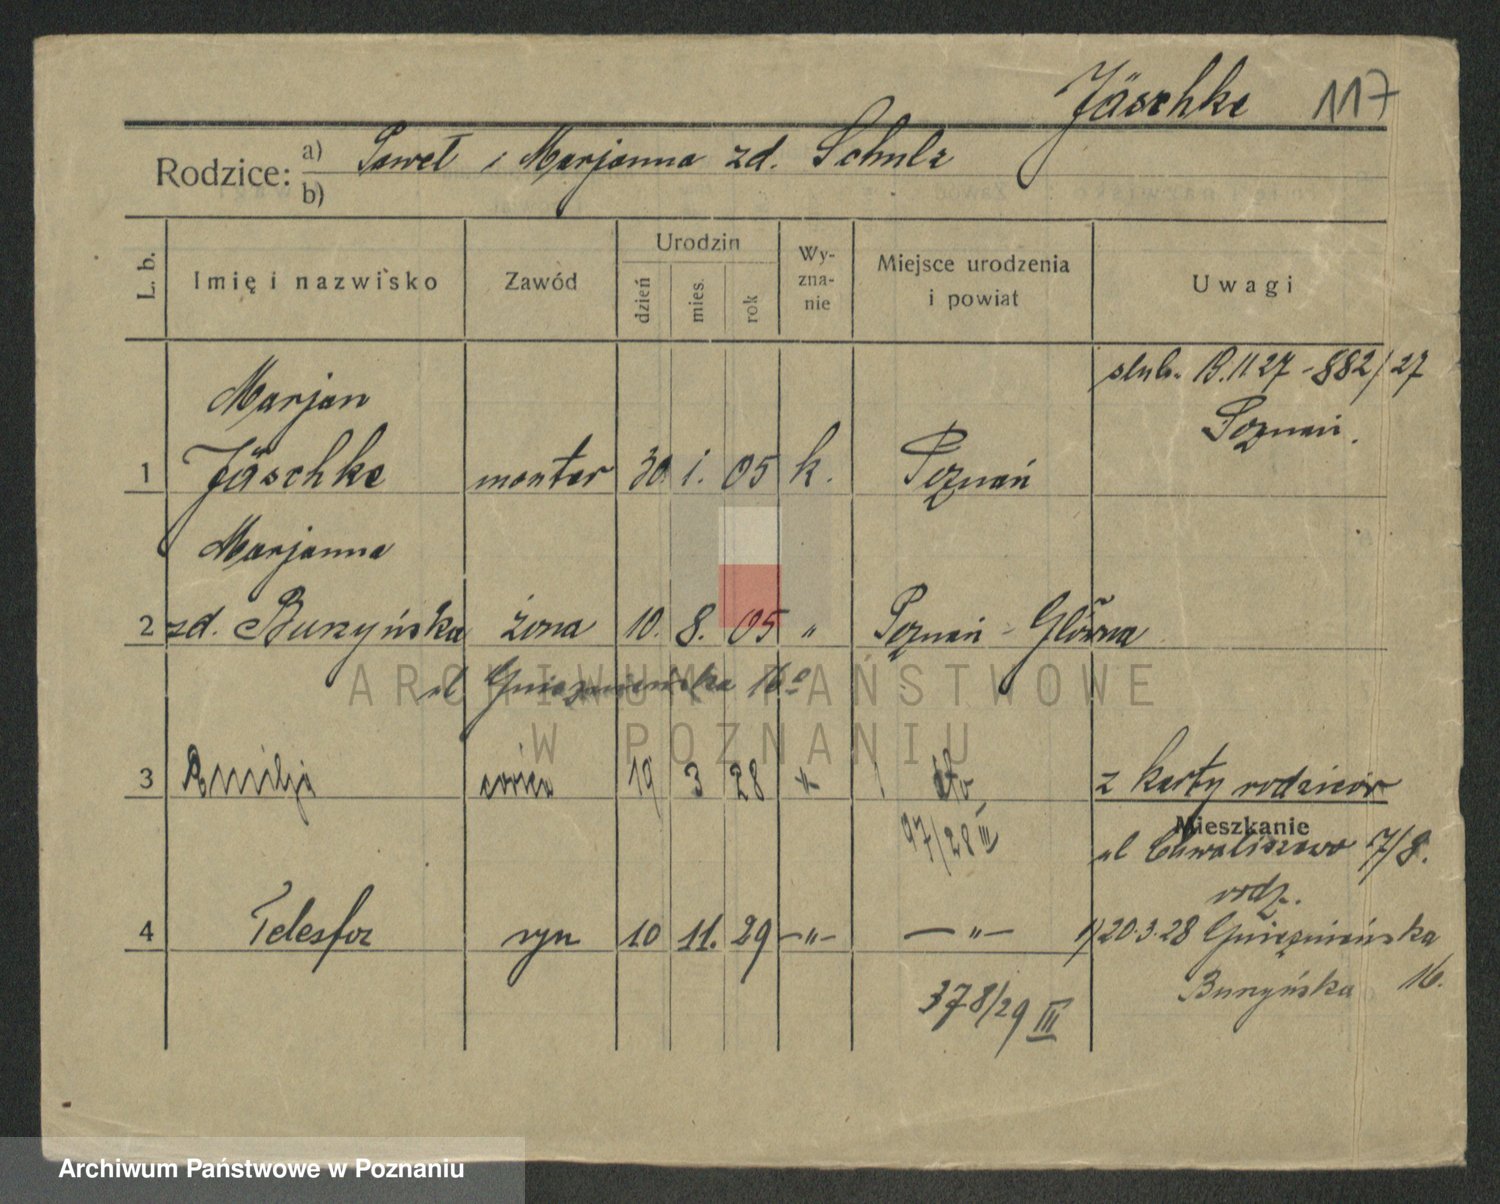 Jäschke 117
Rodzice: a) Paweł i Marjanna zd. Schulz
b)
L. b. Imię i nazwisko Zawód Urodzin dzień mies. rok Wyzna-nie Miejsce urodzenia i powiat Uwagi
ślub. 13.11 27 - 882/27
Poznań.
Marjan
1 Jäschke monter 30. 1. 05 k. Poznań
Marjanna
2 zd. Burzyńska żona 10. 8. 05 " Poznań - Główna
ul Gnieznieńska 16a
3 Emilja córka 19 3 28 " dto
z karty rodziców
97/28 III
Mieszkanie
ul Chwaliszewo 7/8.
rodz.
4 Telesfor syn 10 11. 29 -"- -"-
1) 20.3.28 Gnieznieńska
Burzyńska 16.
378/29 III
ARCHIWUM PAŃSTWOWE
W POZNANIU
Archiwum Państwowe w Poznaniu